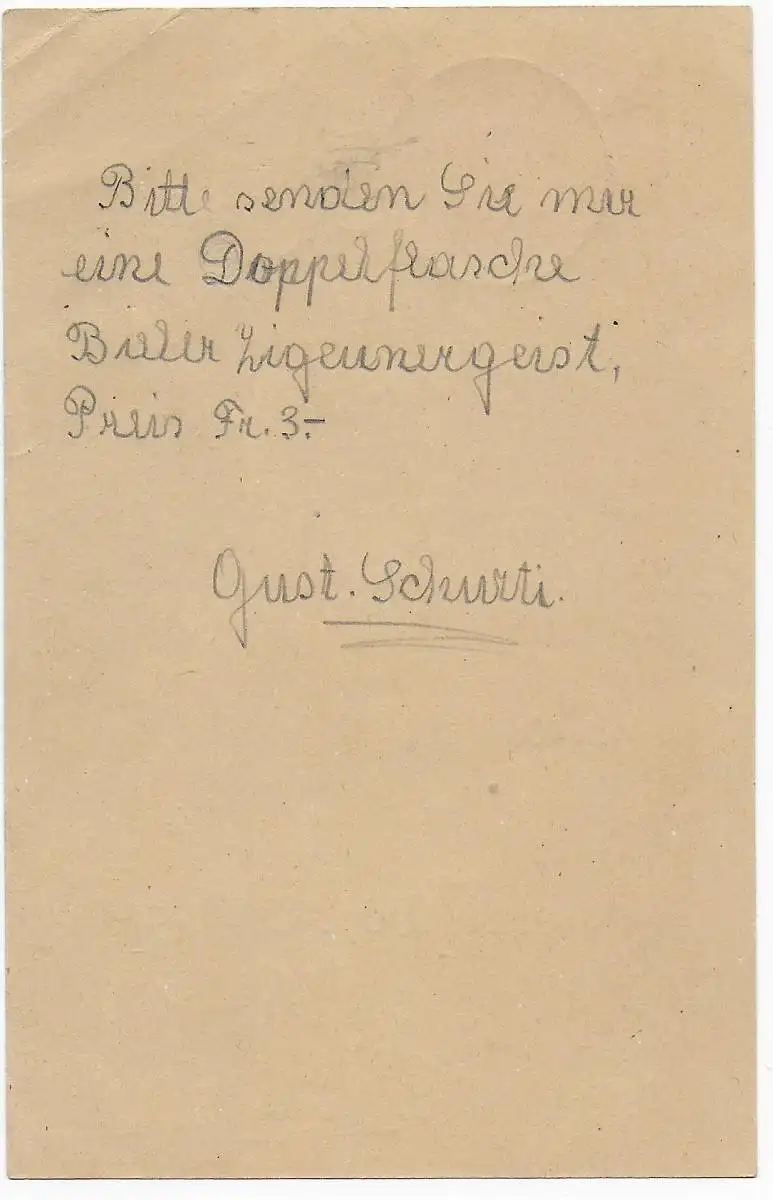 Bitte senden Sie mir
eine Doppelflasche
Bieler Zigeunergeist,
Preis Fr. 3.-
Gust. Schurti.